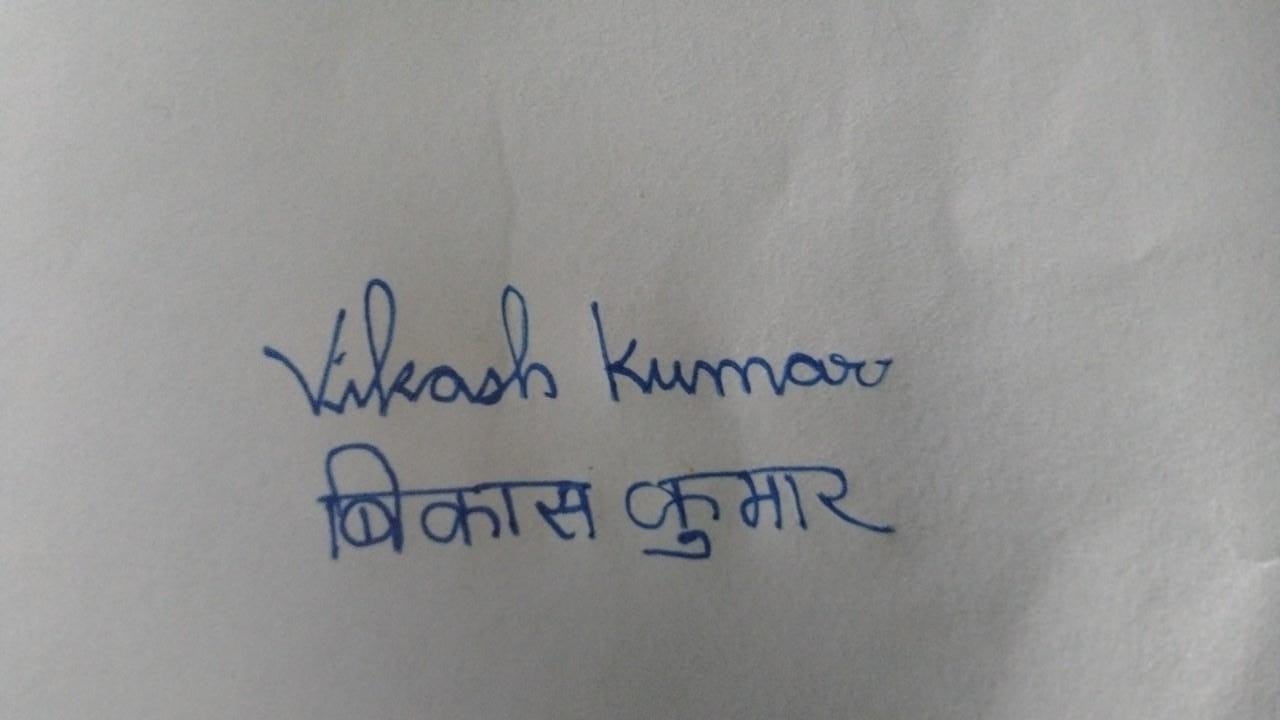 Vikash Kumar
बिकास कुमार